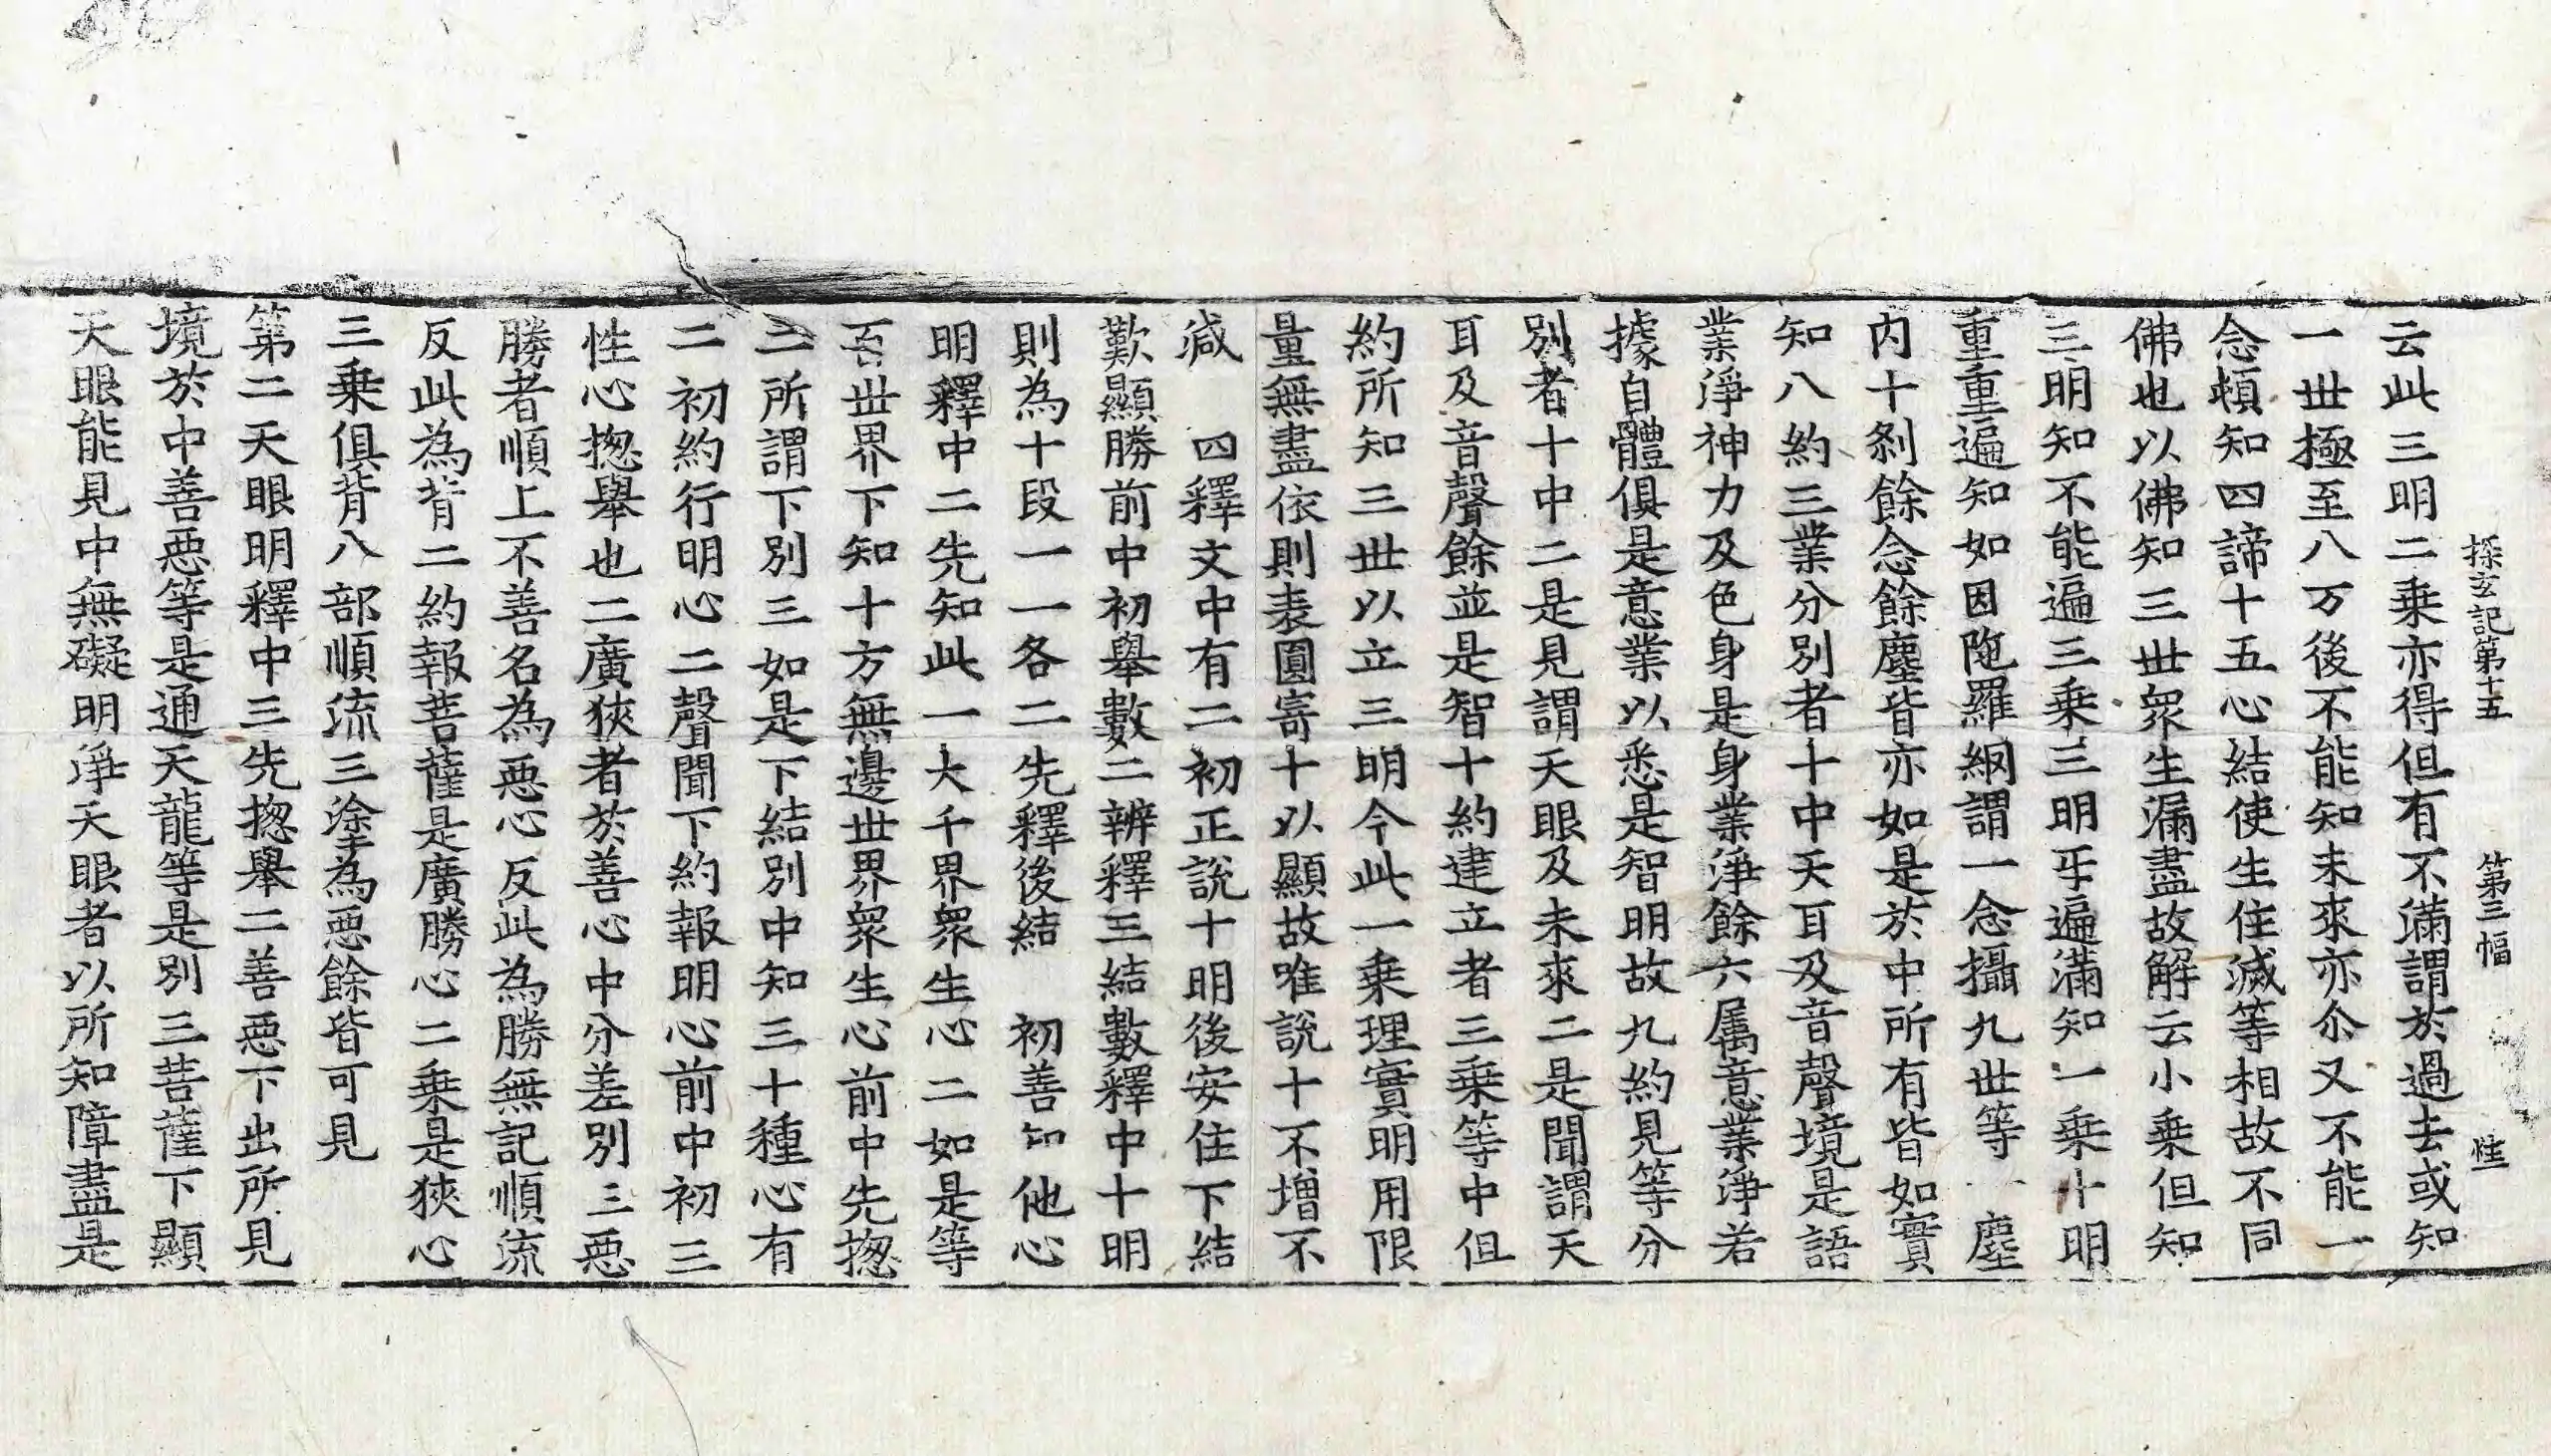 探玄記第十五 第三幅 惟
云此三明二乗亦得但有不滿謂於過去或知
一世極至八万後不能知未來亦尒又不能一
念頓知四諦十五心結使生住滅等相故不同
佛也以佛知三世衆生漏盡故解云小乗但知
三明知不能遍三乗三明乎遍滿知一乗十明
重重遍知如因陁羅網謂一念攝九世等一塵
内十刹餘念餘塵皆亦如是於中所有皆如實
知八約三業分別者十中天耳及音聲境是語
業淨神力及色身是身業淨餘六属意業淨若
據自體俱是意業以悉是智明故九約見等分
別者十中二是見謂天眼及未來二是聞謂天
耳及音聲餘並是智十約建立者三乗等中但
約所知三世以立三明今此一乗理實明用限
量無盡依則表圓寄十以顯故唯說十不增不
减 四釋文中有二初正說十明後安住下結
歎顯勝前中初舉數二辨釋三結數釋中十明
則為十段一一各二先釋後結 初善知他心
明釋中二先知此一大千界衆生心二如是等
百世界下知十方無邊世界衆生心前中先揔
二所謂下別三如是下結別中知三十種心有
二初約行明心二聲聞下約報明心前中初三
性心揔舉也二廣狹者於善心中分差別三惡
勝者順上不善名為惡心反此為勝無記順流
反此為背二約報菩薩是廣勝心二乗是狹心
三乗俱背八部順流三塗為惡餘皆可見
第二天眼明釋中三先揔舉二善惡下出所見
境於中善惡等是通天龍等是別三菩薩下顯
天眼能見中無礙明淨天眼者以所知障盡是